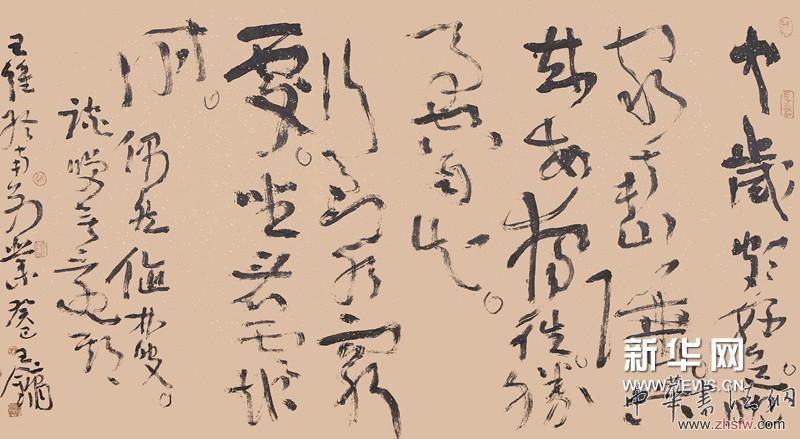 中歲頗好道。晚
家南山陲。興
來每獨往勝
事空自知。
行到水窮
處。坐看雲起
時。
偶然值林叟。
談笑無還期
王維終南別業 癸巳 王鏞
新华网
WWW.NEWS.CN
中華書法網
www.zhsfw.com